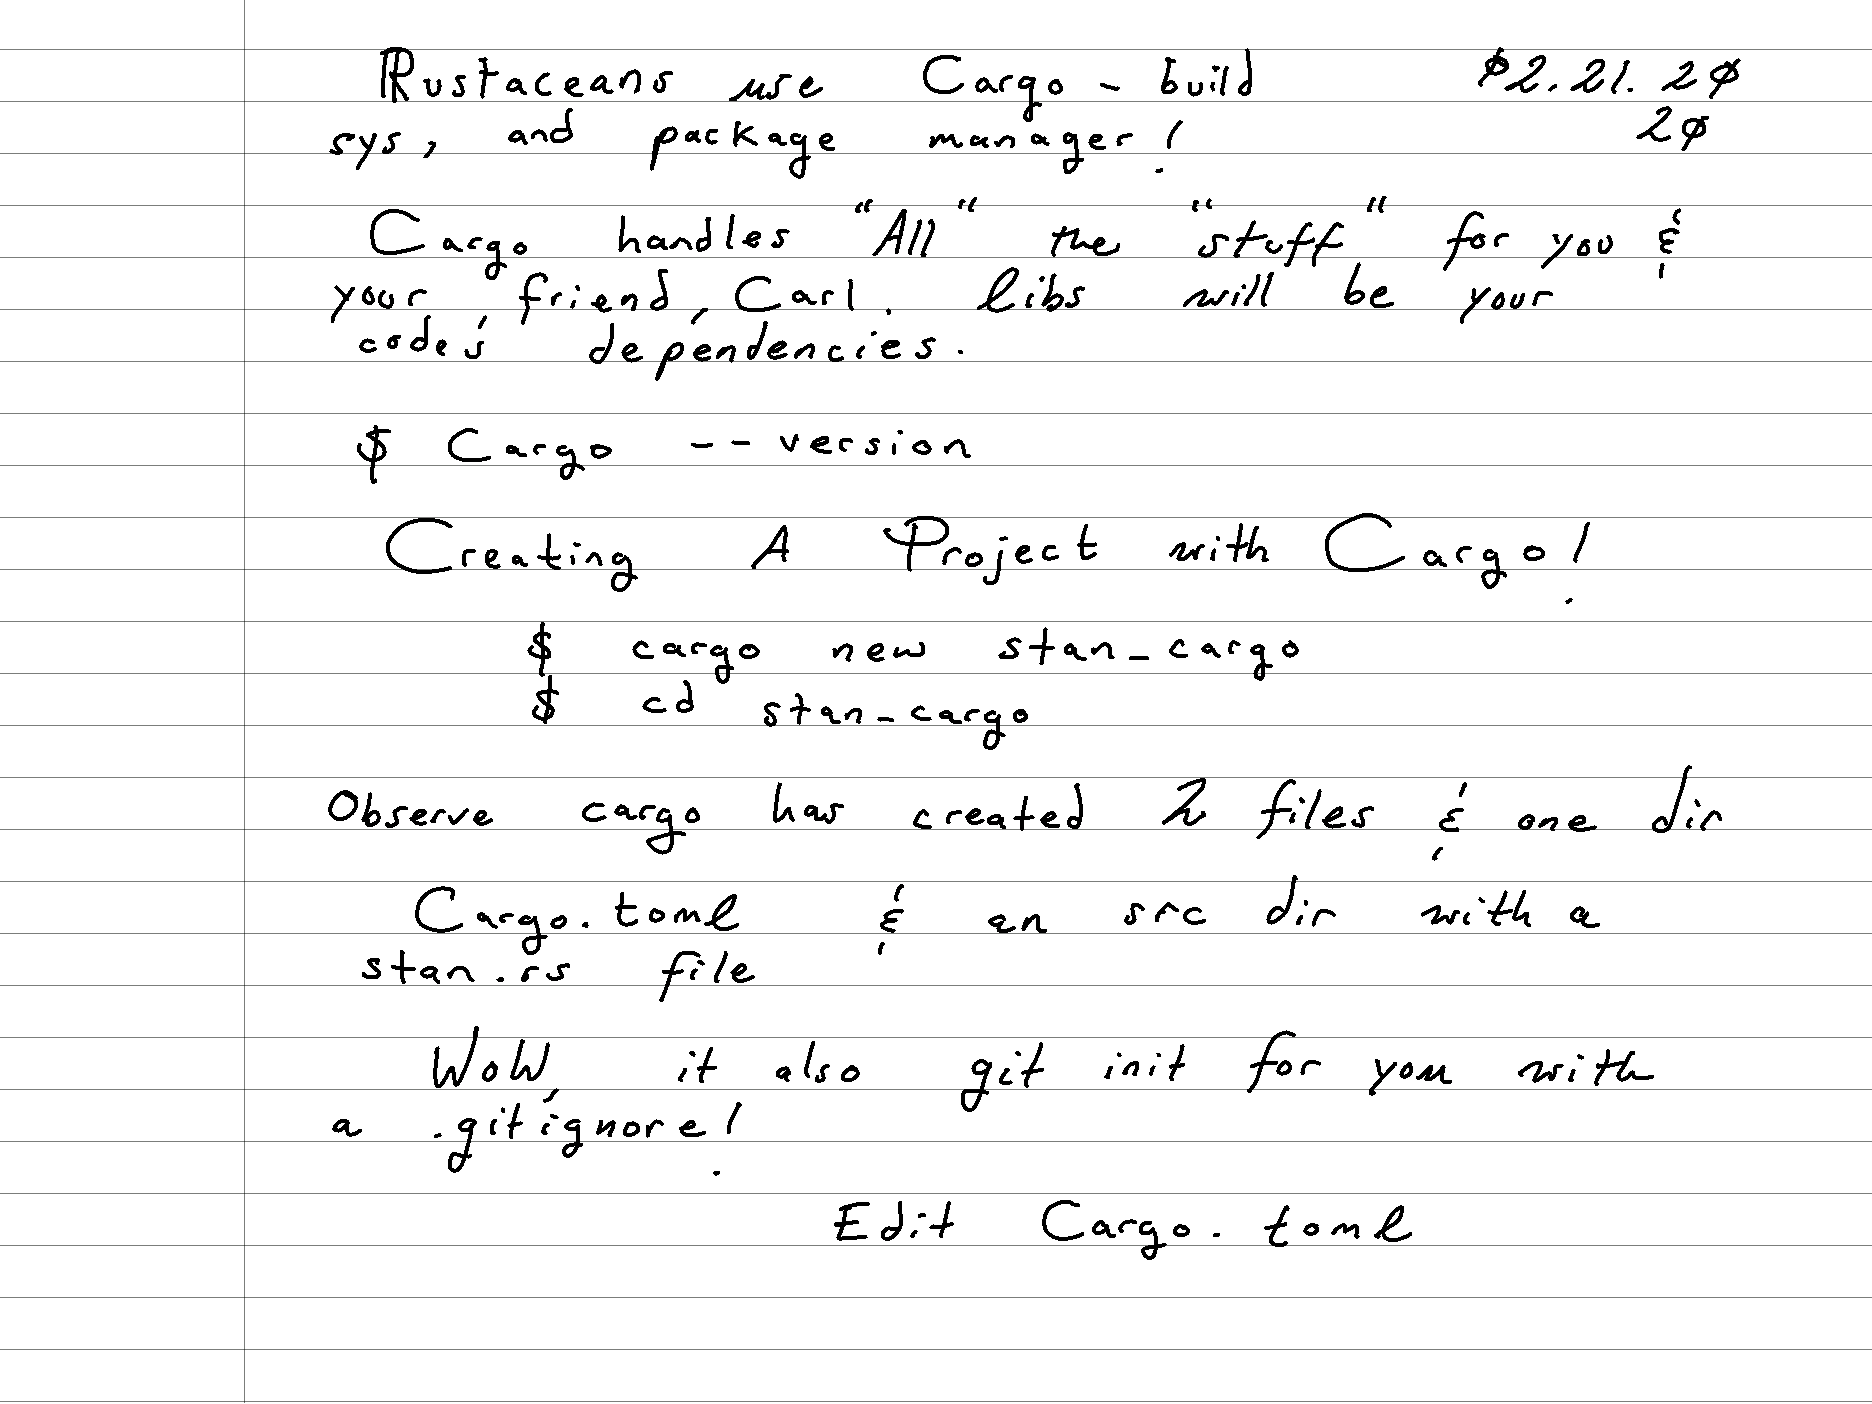 Rustaceans use Cargo - build 02.21.20
sys, and package manager! 20
Cargo handles "All" the "stuff" for you &
your friend, Carl. libs will be your
code's dependencies.
$ Cargo --version
Creating A Project with Cargo!
$ cargo new stan_cargo
$ cd stan_cargo
Observe cargo has created 2 files & one dir
Cargo.toml & an src dir with a
stan.rs file
WoW, it also git init for you with
a .gitignore!
Edit Cargo.toml